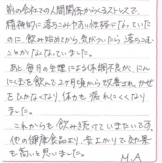 前の会社での人間関係からくるストレスで、
精神的に落ちこみやすい性格になっていた
のに飲み始めてから、気がついたら落ちこむ
ことがなくなっていました。
あと、毎月の生理による体調不良が、にん
にく玉を飲んで2ヶ月頃から改善され、かぜ
をひかなくなり体も疲れにくくなり
ました。
これからも飲み続けていきたいです。
他の健康食品より、安上がりで効果
も高いと思いました。
M.A